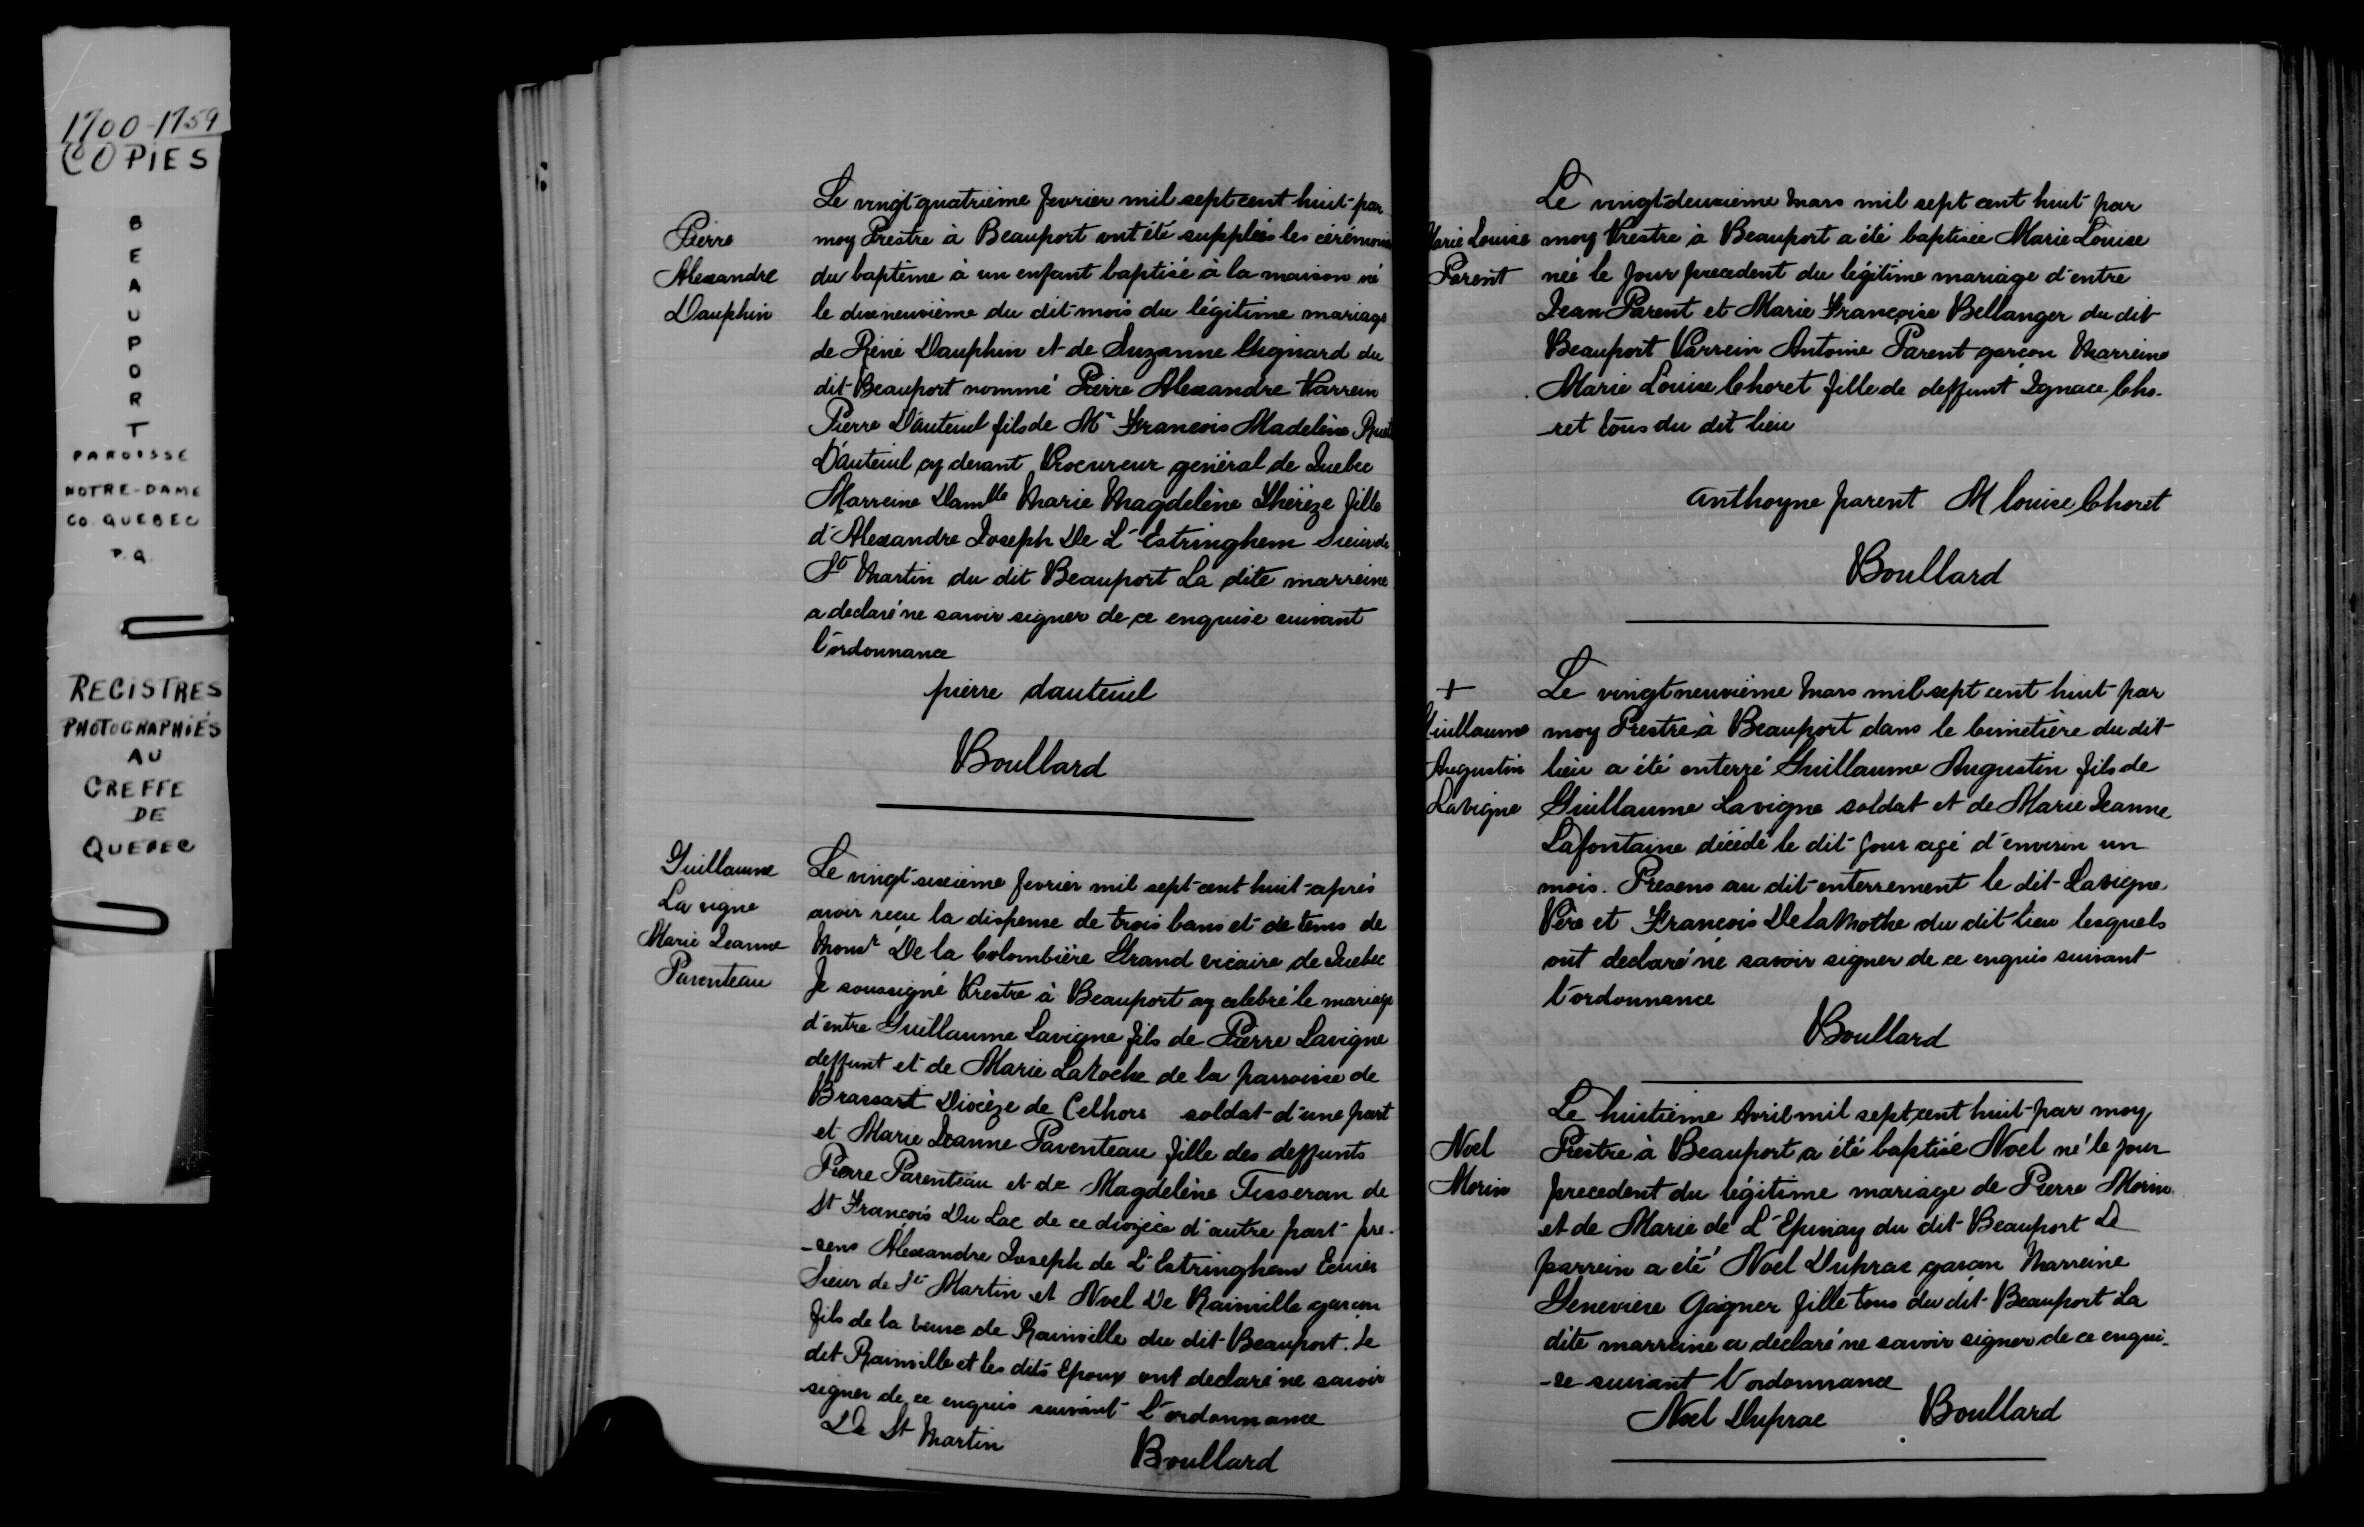 1700-1759
COPIES
B
E
A
U
P
O
R
T
PAROISSE
NOTRE-DAME
CO. QUEBEC
P.Q.
REGISTRES
PHOTOGRAPHIÉS
AU
GREFFE
DE
QUEBEC
Pierre
Alexandre
Dauphin
Le vingt quatrième fevrier mil sept cent huit par
moy Prestre à Beauport ont été supplées les cérémonies
du baptême à un enfant baptisé à la maison né
le dixneuvième du dit mois du légitime mariage
de Réné Dauphin et de Suzanne Gignard du
dit Beauport nommé Pierre Alexandre Parrein
Pierre D'auteuil fils de Mr François Madelène Ruet
D'auteuil cy devant Procureur général de Quebec
Marreine Damlle Marie Magdelène Thérèze fille
d'Alexandre Joseph De L'Estringhem Sieur de
St Martin du dit Beauport La dite marreine
a declaré ne savoir signer de ce enquise suivant
l'ordonnance
pierre dauteuil
Boullard
Guillaume
La vigne
Marie Jeanne
Parenteau
Le vingt sixième fevrier mil sept cent huit après
avoir reçu la dispense de trois bans et de tems de
Monsr De la Colombière Grand vicaire de Quebec
Je soussigné Prestre à Beauport ay celebré le mariage
d'entre Guillaume Lavigne fils de Pierre Lavigne
deffunt et de Marie LaRoche de la parroisse de
Brassart Diocèze de Celhors soldat d'une part
et Marie Jeanne Parenteau fille des deffunts
Pierre Parenteau et de Magdelène Tisseran de
St François Du Lac de ce diozèce d'autre part pre-
-sens Alexandre Joseph de L'Estringhem Ecuier
Sieur de St Martin et Noel De Rainville garçon
fils de la veuve de Rainville du dit Beauport. Le
dit Rainville et les dits Epoux ont declaré ne savoir
signer de ce enquis suivant l'ordonnance
De St Martin
Boullard
Marie Louise
Parent
Le vingtdeuxième Mars mil sept cent huit par
moy Prestre à Beauport a été baptisée Marie Louise
née le jour precedent du légitime mariage d'entre
Jean Parent et Marie Françoise Bellanger du dit
Beauport Parrein Antoine Parent garçon Marreine
Marie Louise Choret fille de deffunt Ignace Cho-
-ret tous du dit lieu
anthoyne parent M louise Choret
Boullard
+
Guillaume
Augustin
Lavigne
Le vingt neuvième Mars mil sept cent huit par
moy Prestre à Beauport dans le Cimetière du dit
lieu a été enterré Guillaume Augustin fils de
Guillaume Lavigne soldat et de Marie Jeanne
Lafontaine décédé le dit jour agé d'environ un
mois. Presens au dit enterrement le dit Lavigne
Père et François DeLaMothe du dit lieu lesquels
ont declaré ne savoir signer de ce enquis suivant
l'ordonnance
Boullard
Noel
Morin
Le huitième Avril mil sept cent huit par moy
Prestre à Beauport a été baptisé Noel né le jour
precedent du légitime mariage de Pierre Morin
et de Marie de L'Epinay du dit Beauport Le
parrein a été Noel Duprac garçon Marreine
Genevieve Gagner fille tous du dit Beauport La
dite marreine a declaré ne savoir signer de ce enqui-
-se suivant l'ordonnance
Noel Duprac Boullard